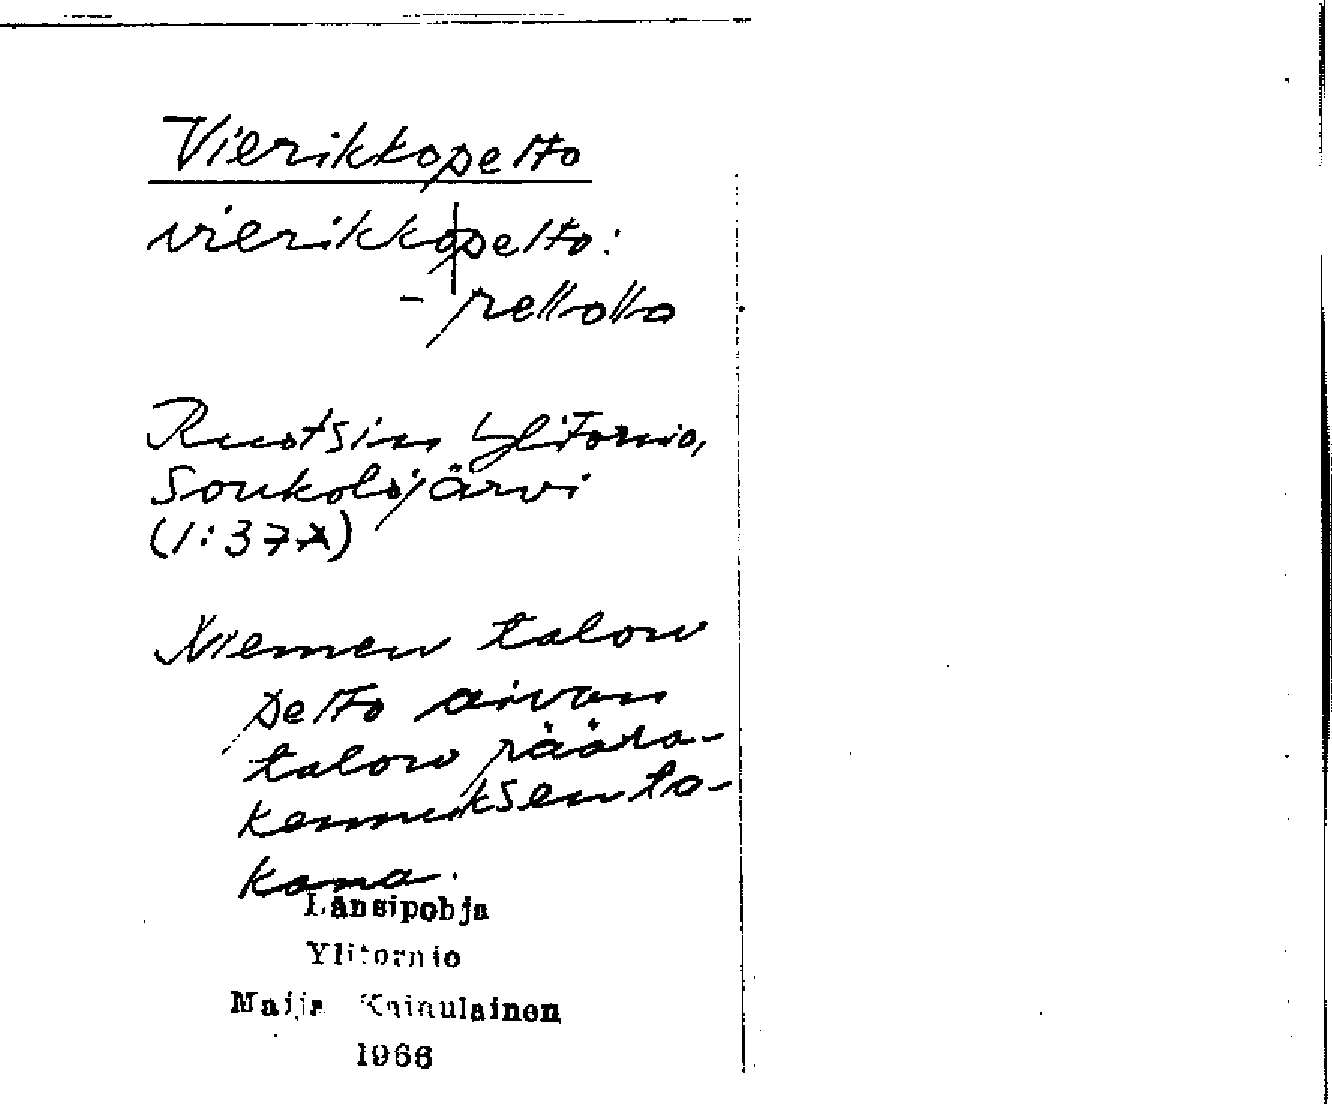 Vierikkopelto
vierikko|pelto:
- pellolla
Ruotsin Ylitornio,
Soukolojärvi
(1:37A)
Niemen talon
pelto aivan
talon päära-
kennuksen ta-
kana.
Länsipohja
Ylitornio
Maija Kainulainen
1966